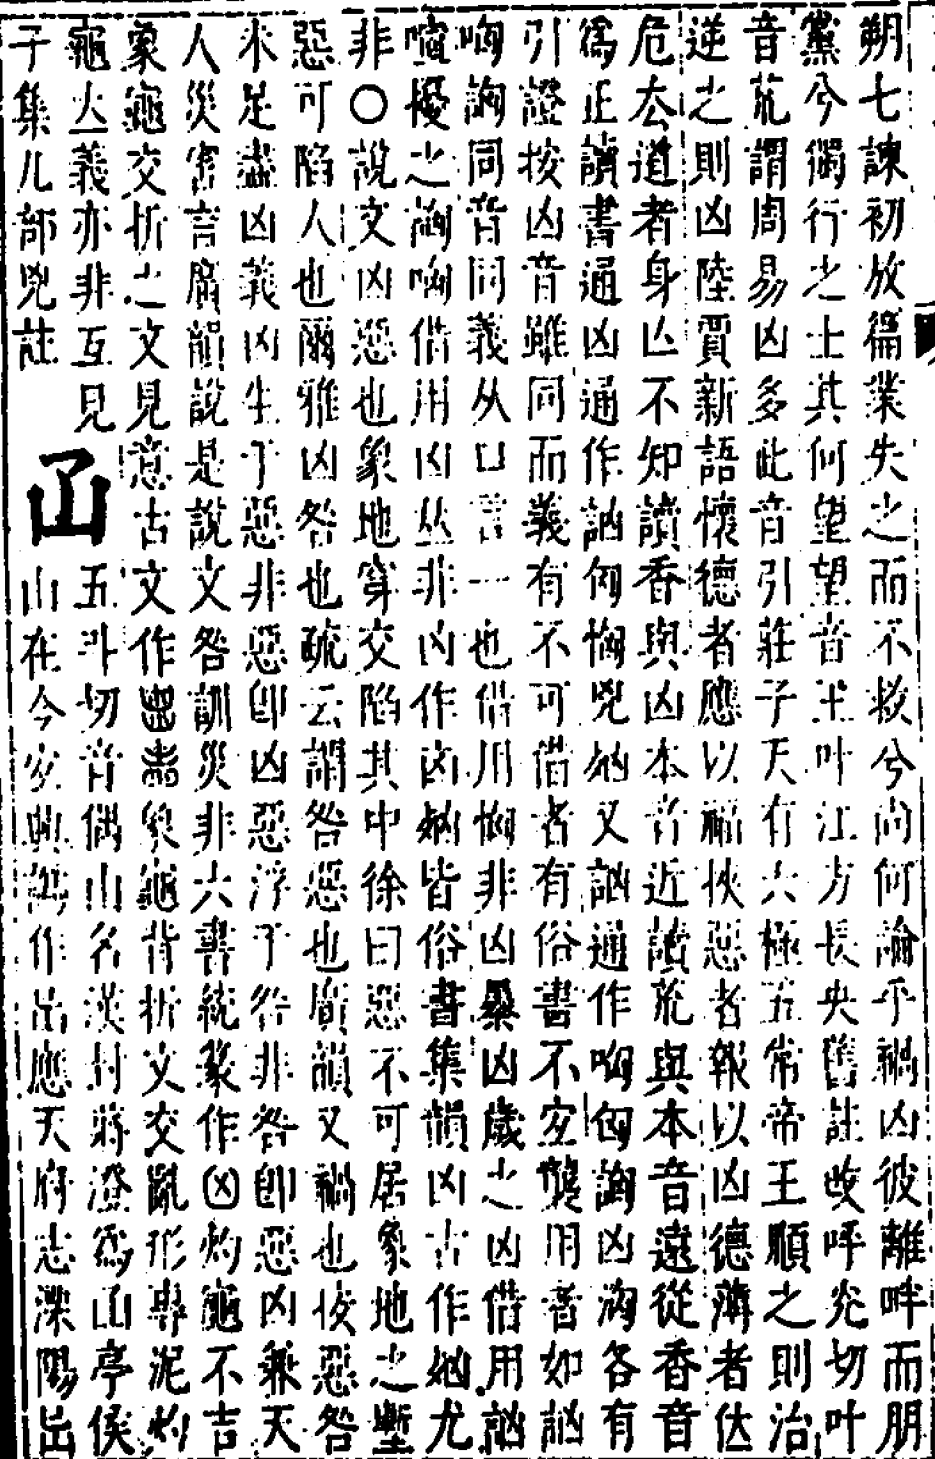 朔七諫初放篇業失之而不救兮尚何論乎禍凶彼離畔而朋
黨兮獨行之士其何望望音王叶江方長央舊註改呼光切叶
音荒謂周易凶多此音引莊子天有六極五常帝王順之則治
逆之則凶陸賈新語懷德者應以福挾惡者報以凶德薄者位
危去道者身亡不知讀香與凶本音近讀荒與本音遠從香音
為正讀書通凶通作訩匈恟兇又訩通作哅匈詾凶洶各有
引證按凶音雖同而義有不可借者有俗書不宜襲用者如訩
哅詾同音同義从口言一也借用恟非凶暴凶歲之凶借用訩
喧擾之詾哅借用凶从非凶作皆俗書集韻凶古作尤
非○說文凶惡也象地穿交陷其中徐曰惡不可居象地之塹
惡可陷人也爾雅凶咎也疏云謂咎惡也廣韻又禍也按惡咎
未足盡凶義凶生于惡非惡卽凶惡浮于咎非咎卽惡凶兼天
人災害言廣韻說是說文咎訓災非六書統篆作凶灼龜不吉
象龜交折之文見意古文作象龜背折文交亂形專泥灼
龜義亦非互見
子集儿部兇註
五斗切音偶山名漢封蔣澄為亭侯
山在今宜興作應天府志溧陽